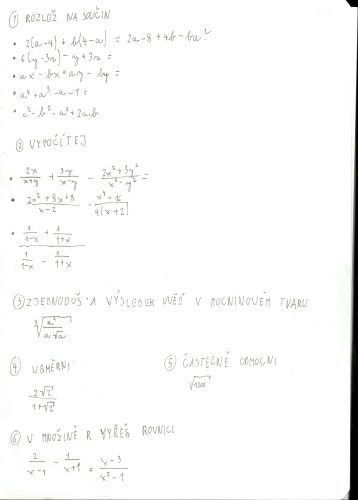 ① ROZLOŽ NA SOUČIN
• 2(a-4) + b(4-a) = 2a-8+4b-ba²
• 6(y-3x) - y+3x =
• ax - bx + ay - by =
• a⁴ + a³ - a - 1 =
• c² - b² - a² + 2ab
② VYPOČÍTEJ
• 2x/(x+y) + 3y/(x-y) - (2x²+3y²)/(x²-y²) =
• (2x²+8x+8)/(x-2) · /(4(x+2))
• (1/(1-x) + 1/(1+x))/(1/(1-x) - 1/(1+x))
③ ZJEDNODUŠ A VÝSLEDEK UVEĎ V MOCNINOVÉM TVARU
④ USMĚRNI ⑤ ČÁSTEČNĚ ODMOCNI
2√2/(1+√2) √1200
⑥ V MNOŽINĚ R VYŘEŠ ROVNICI
2/(x-1) - 1/(x+1) = (x-3)/(x²-1)